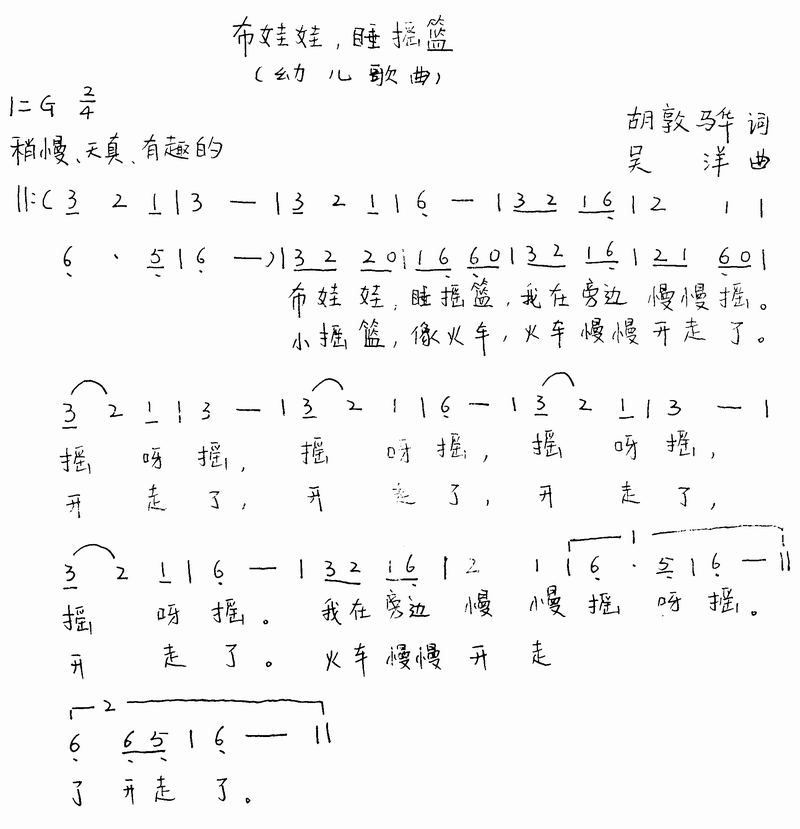 布娃娃,睡摇篮
(幼儿歌曲)
1=G 2/4
胡敦骅 词
稍慢、天真、有趣的
吴 洋 曲
||:( 3 2 1 | 3 — | 3 2 1 | 6 — | 3 2 1 6 | 2 1 |
6 · 5 | 6 — ) | 3 2 2 0 | 1 6 6 0 | 3 2 1 6 | 2 1 6 0 |
布娃娃,睡摇篮,我在旁边 慢慢摇。
小摇篮,像火车,火车慢慢开走了。
3 2 1 | 3 — | 3 2 1 | 6 — | 3 2 1 | 3 — |
摇 呀摇, 摇 呀摇, 摇 呀摇,
开 走了, 开 走了, 开 走了,
1
3 2 1 | 6 — | 3 2 1 6 | 2 1 | 6 · 5 | 6 — ||
摇 呀摇。 我在旁边 慢 慢摇 呀摇。
开 走了。 火车慢慢开 走
2
6 6 5 | 6 — ||
了 开走 了。